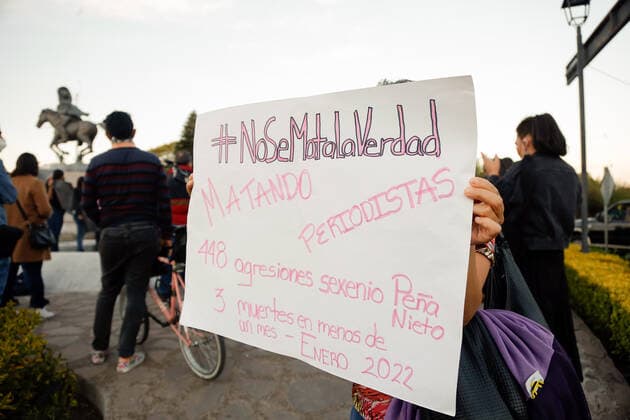 #NoSeMataLaVerdad
MATANDO PERIODISTAS
448 agresiones sexenio Peña
Nieto
3 muertes en menos de
un mes - Enero 2022